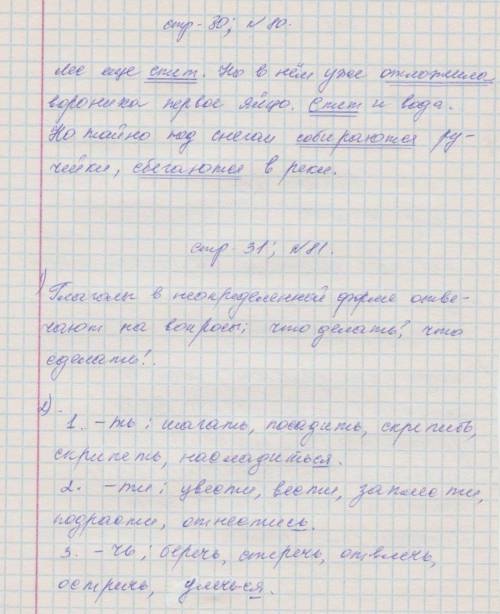 стр-30; №80.
Лес еще спит. Но в нём уже отложила
вороника первое яйцо. Спит и вода.
Но тайно под снегом собираются ру-
чейки, сбегаются в реки.
стр-31; №81.
1) Глаголы в неопределенной форме отве-
чают на вопросы; что делать?, что
сделать?.
2) .
1. -ть; шагать, посадить, скрепить,
скрипеть, насладиться.
2. -ти; цвести, вести, заплести,
подрасти, отнестись.
3. -чь; беречь, стеречь, отвлечь,
остречь, улечься.